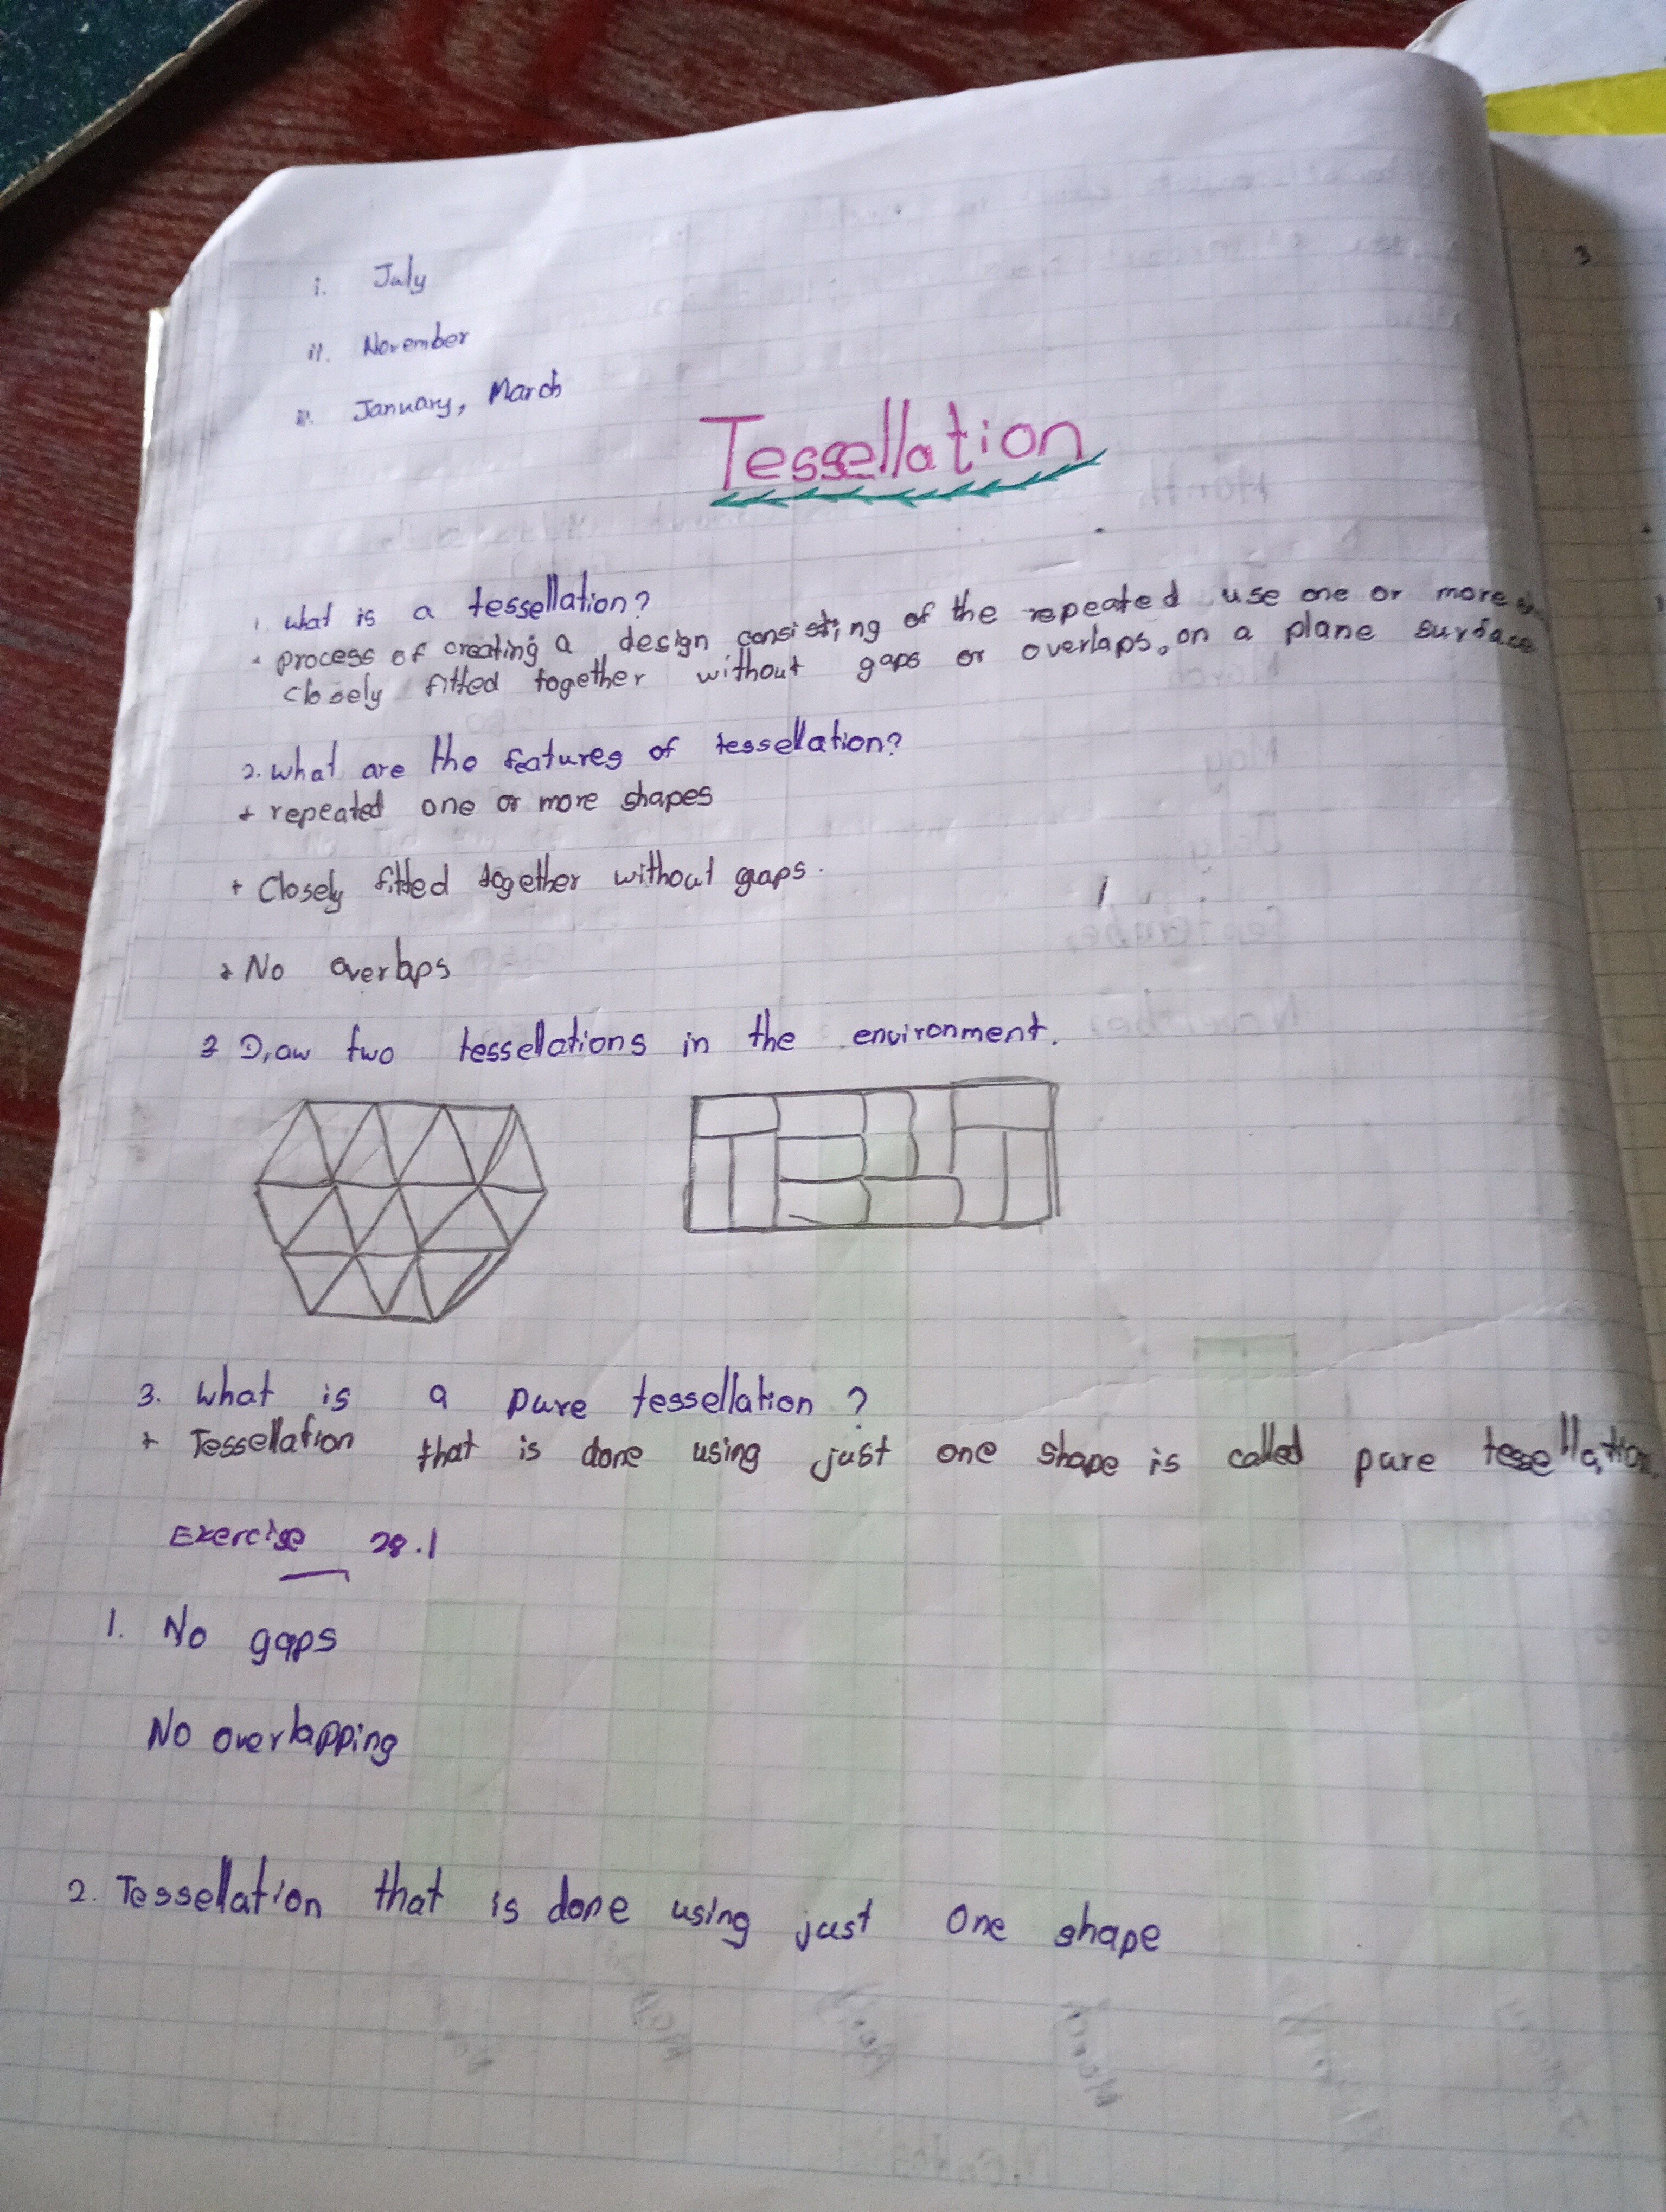 i. July
ii. November
iii. January, March
Tessellation
1 what is a tessellation?
process of creating a design consisting of the repeated use one or more
closely fitted together without gaps or overlaps, on a plane surface
2. what are the features of tessellation?
+ repeated one or more shapes
+ Closely fitted together without gaps.
+ No overlaps
3 Draw two tessellations in the environment.
3. what is a pure tessellation?
+ Tessellation that is done using just one shape is called pure tessellation.
Exercise 28.1
1. No gaps
No overlapping
2. Tessellation that is done using just one shape